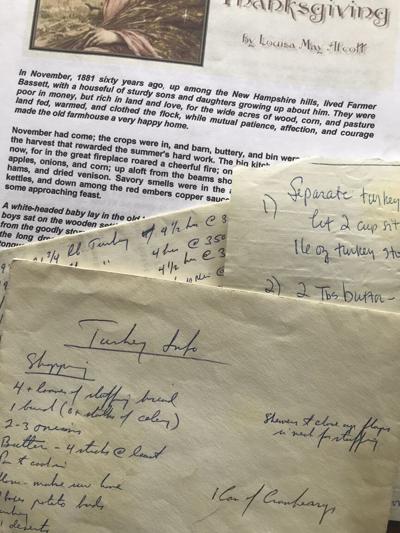 Thanksgiving
by Louisa May Alcott
In November, 1881 sixty years ago, up among the New Hampshire hills, lived Farmer
Bassett, with a houseful of sturdy sons and daughters growing up about him. They were
poor in money, but rich in land and love, for the wide acres of wood, corn, and pasture
land fed, warmed, and clothed the flock, while mutual patience, affection, and courage
made the old farmhouse a very happy home.
November had come; the crops were in, and barn, buttery, and bin were
the harvest that rewarded the summer's hard work. The big kitch
now, for in the great fireplace roared a cheerful fire; on
apples, onions, and corn; up aloft from the beams sho
hams, and dried venison. Savory smells were in the
kettles, and down among the red embers copper sauc
some approaching feast.
A white-headed baby lay in the old
boys sat on the wooden set
from the goodly
the long
Separate turkey
1) let 2 cup sit
16 oz turkey sto
2) 2 Tbs butter -
lb Turkey 4 1/2 hr @ 3
4 hr @ 350
4 1/2 hr @
Turkey Info
Shopping
4 + loaves of stuffing bread
1 bunch (6+ stalks of celery)
2-3 onions
Butter - 4 sticks @ least
make sure have
potato buds
Skewers to close up flaps
if need for stuffing
1 Can of Cranberrys